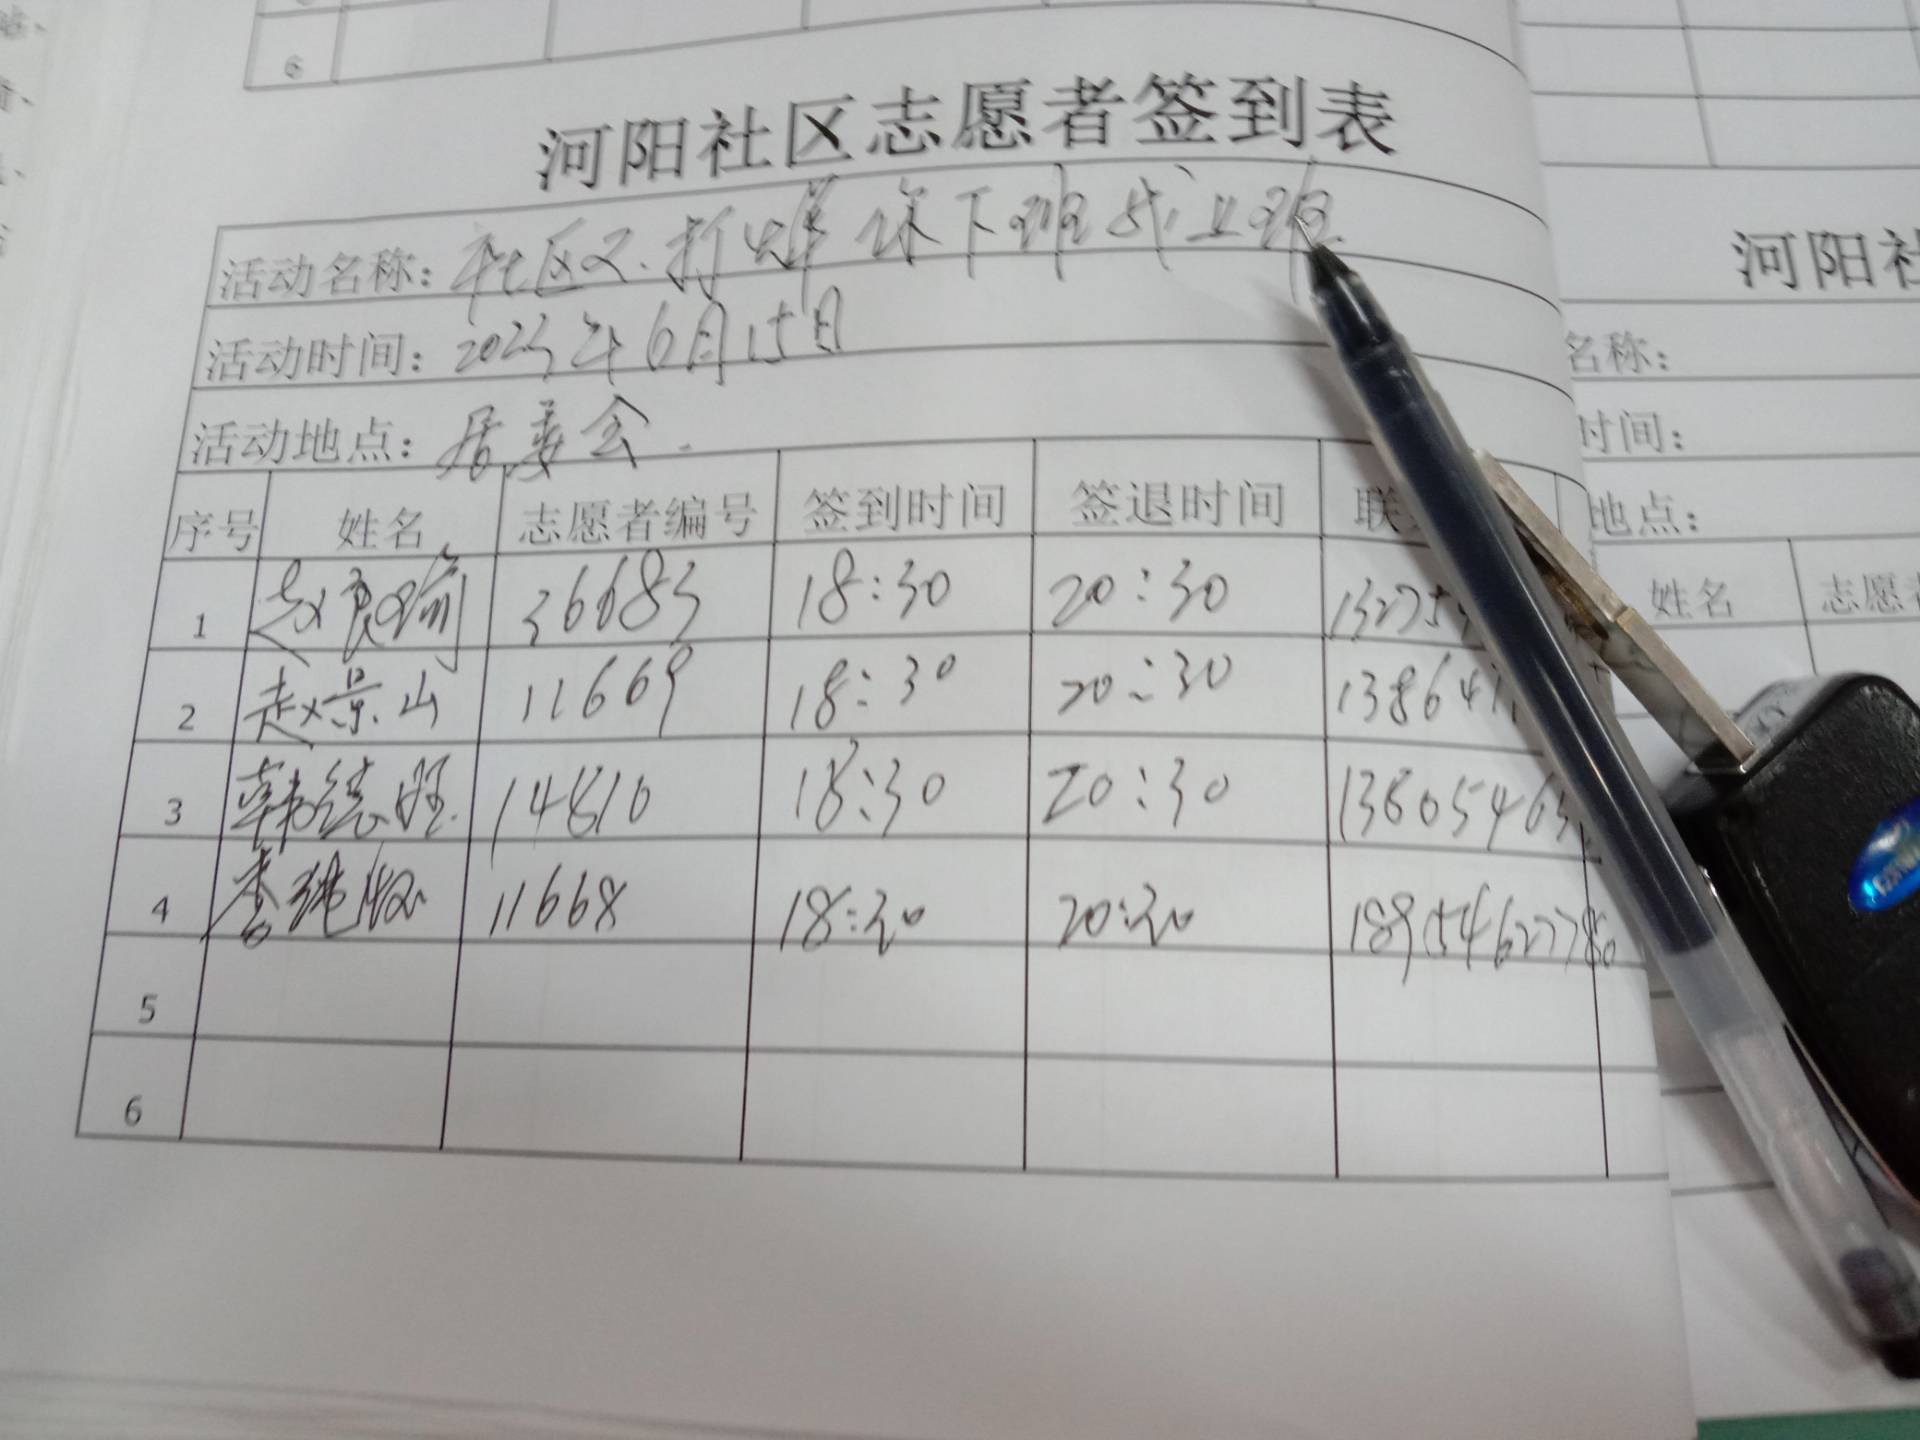 6
河阳社区志愿者签到表
活动名称：社区不打烊 你下班我上班
活动时间：2023年6月15日
活动地点：居委会.
序号 姓名 志愿者编号 签到时间 签退时间 联
1 赵良瑜 36683 18:30 20:30 132754
2 赵景山 11669 18:30 20:30 138641
3 韩德旺 14810 18:30 20:30 1360546
4 李纯 11668 18:30 20:30 18954627780
5
6
河阳社
名称：
时间：
地点：
姓名 志愿者